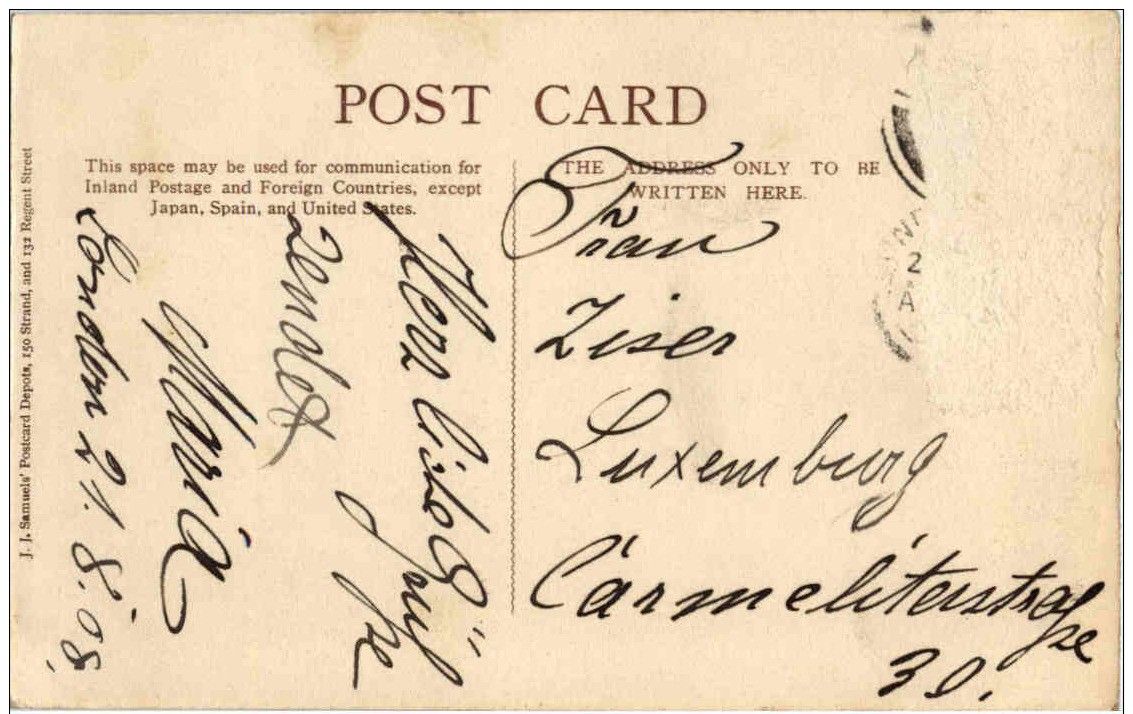 POST CARD
This space may be used for communication for
Inland Postage and Foreign Countries, except
Japan, Spain, and United States.
THE ADDRESS ONLY TO BE
WRITTEN HERE.
J. J. Samuels' Postcard Depots, 150 Strand, and 132 Regent Street
Grüße
sendet
Maria
London 21.8.08.
Frau
Ziser
Luxemburg
Carmeliterstraße
30.